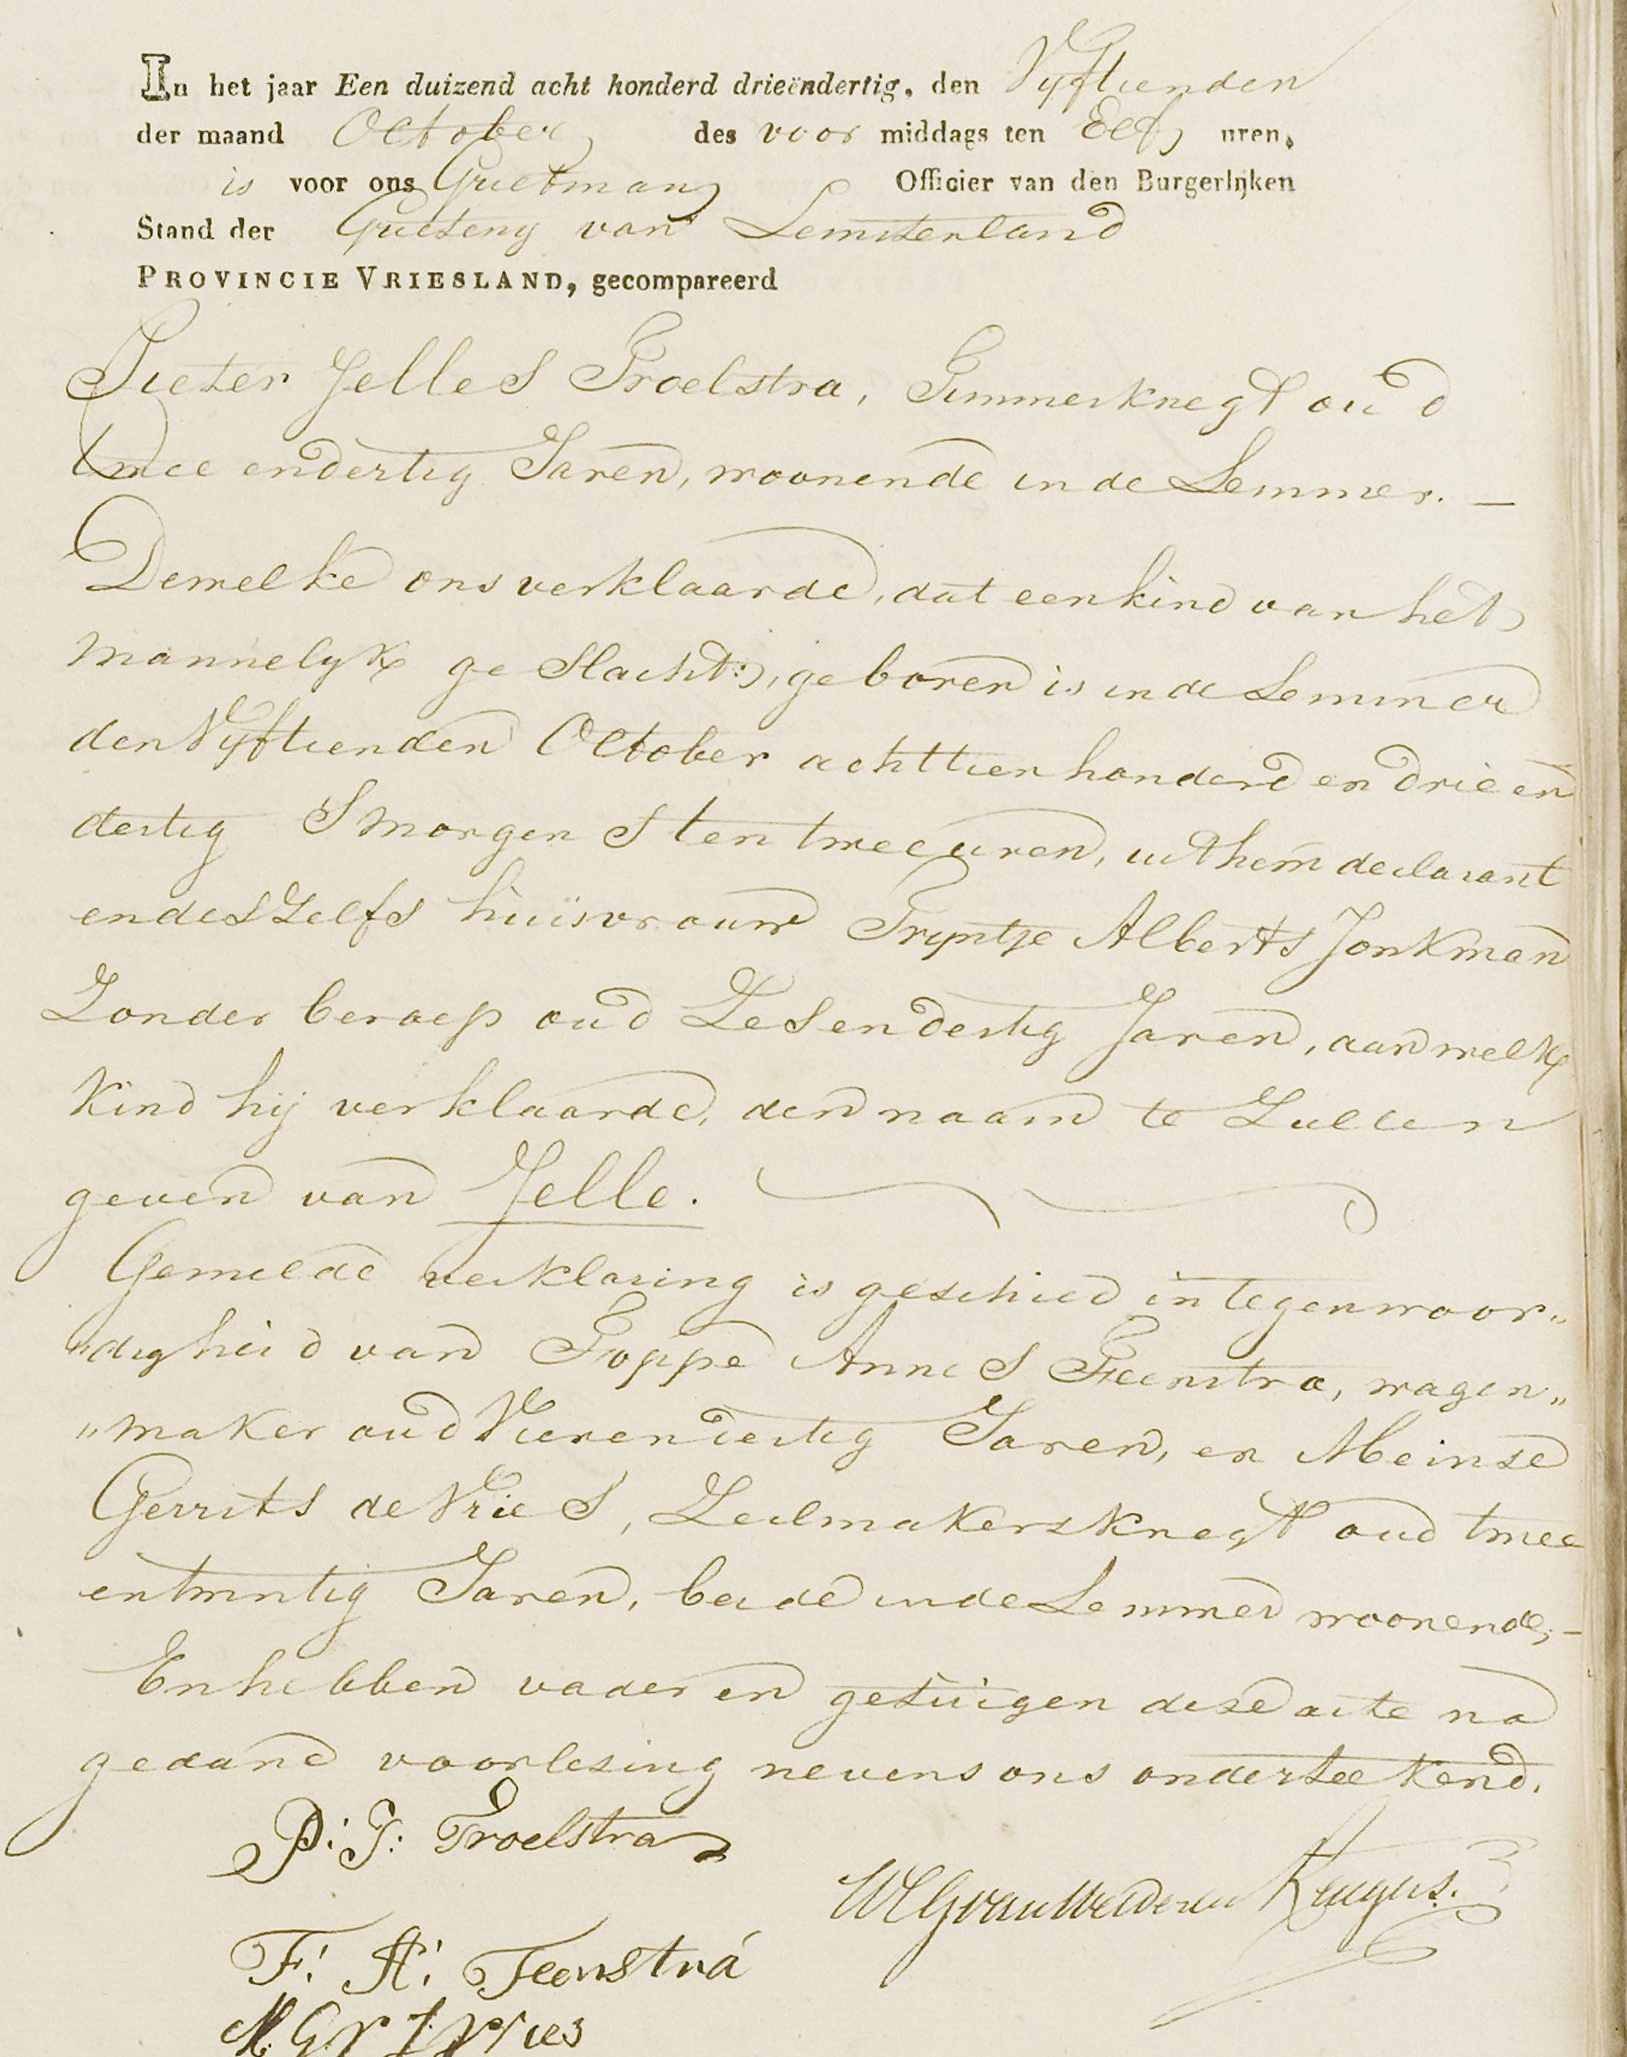 In het jaar Een duizend acht honderd drieëndertig, den Vyftienden
der maand October des voor middags ten Elf uren,
is voor ons Grietman Officier van den Burgerlijken
Stand der Grieteny van Lemsterland
PROVINCIE VRIESLAND, gecompareerd
Pieter Jelles Troelstra, Timmerknegt oud
twee endertig Jaren, woonende in de Lemmer. —
Dewelke ons verklaarde, dat een kind van het
mannelyk ge slacht, geboren is in de Lemmer
den Vyftienden October achttien honderd en drie en
dertig Smorgens ten twee uren, uit hem declarant
en deszelfs huisvrouw Tryntje Alberts Jonkman
Zonder beroep oud Zes en dertig Jaren, aan welk
Kind hij verklaarde, den naam te Zullen
geven van Jelle.
Gemelde verklaring is geschied in tegenwoor„
„digheid van Foppe Annes Feenstra, wagen„
„maker oud Vierendertig Jaren, en Meinse
Gerrits de Vries, Zeilmakersknegt oud twee
entwintig Jaren, beide in de Lemmer woonende, —
En hebben vader en getuigen deze acte na
gedane voorlezing nevens ons onderteekend.
P: J: Troelstra
WCG van Welderen Rengers.
F: A: Feenstra
M. G. Vries